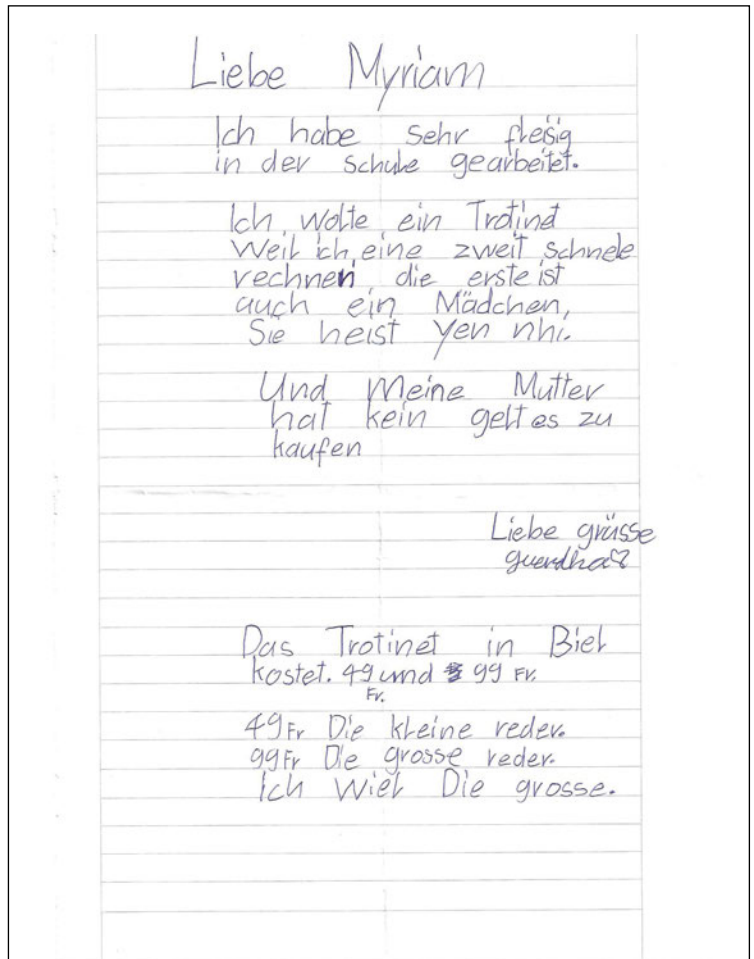 Liebe Myriam
Ich habe sehr fleisig
in der Schule gearbeitet.
Ich wolte ein Trotinet
Weil ich eine zweit schnele
rechnen, die erste ist
auch ein Mädchen,
Sie heist Yen nhi.
Und Meine Mutter
hat kein gelt es zu
kaufen
Liebe grüsse
guerdha
Das Trotinet in Biel
kostet. 49 und 99 Fr.
Fr.
49 Fr Die kleine reder.
99 Fr Die grosse reder.
Ich Wiel Die grosse.